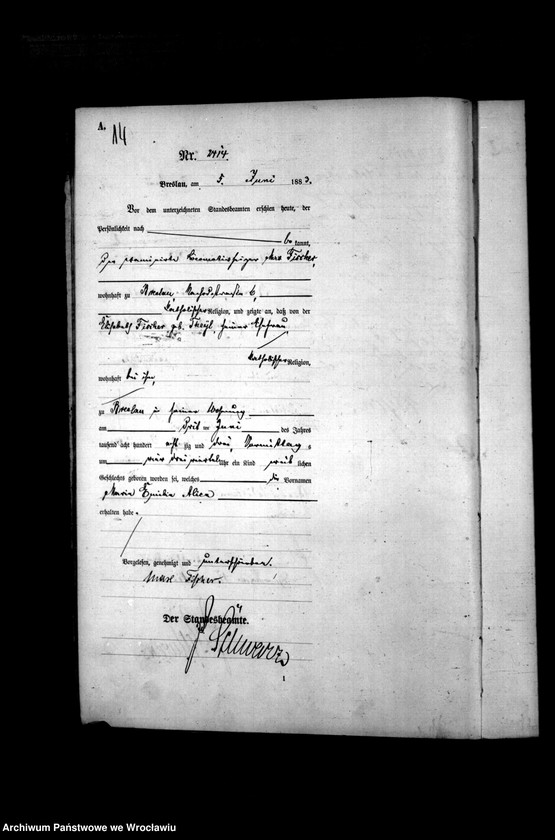 A.
14
Nr. 2414.
Breslau, am 5. Juni 1883.
Vor dem unterzeichneten Standesbeamten erschien heute, der
Persönlichkeit nach
be kannt,
Fischer,
wohnhaft zu Breslau, 6,
katholischer Religion, und zeigte an, daß von der
Elisabeth Fischer geb. seiner Ehefrau
katholischer Religion,
wohnhaft bei ihm,
zu Breslau in seiner Wohnung
am Juni des Jahres
tausend acht hundert acht zig und drei, Vormittags
um drei viertel uhr ein Kind weib lichen
Geschlechts geboren worden sei, welches die Vornamen
Maria Emilie Alice
erhalten habe.
Vorgelesen, genehmigt und unterschrieben.
Max Fischer.
Der Standesbeamte.
Schwarz
1
Archiwum Państwowe we Wrocławiu